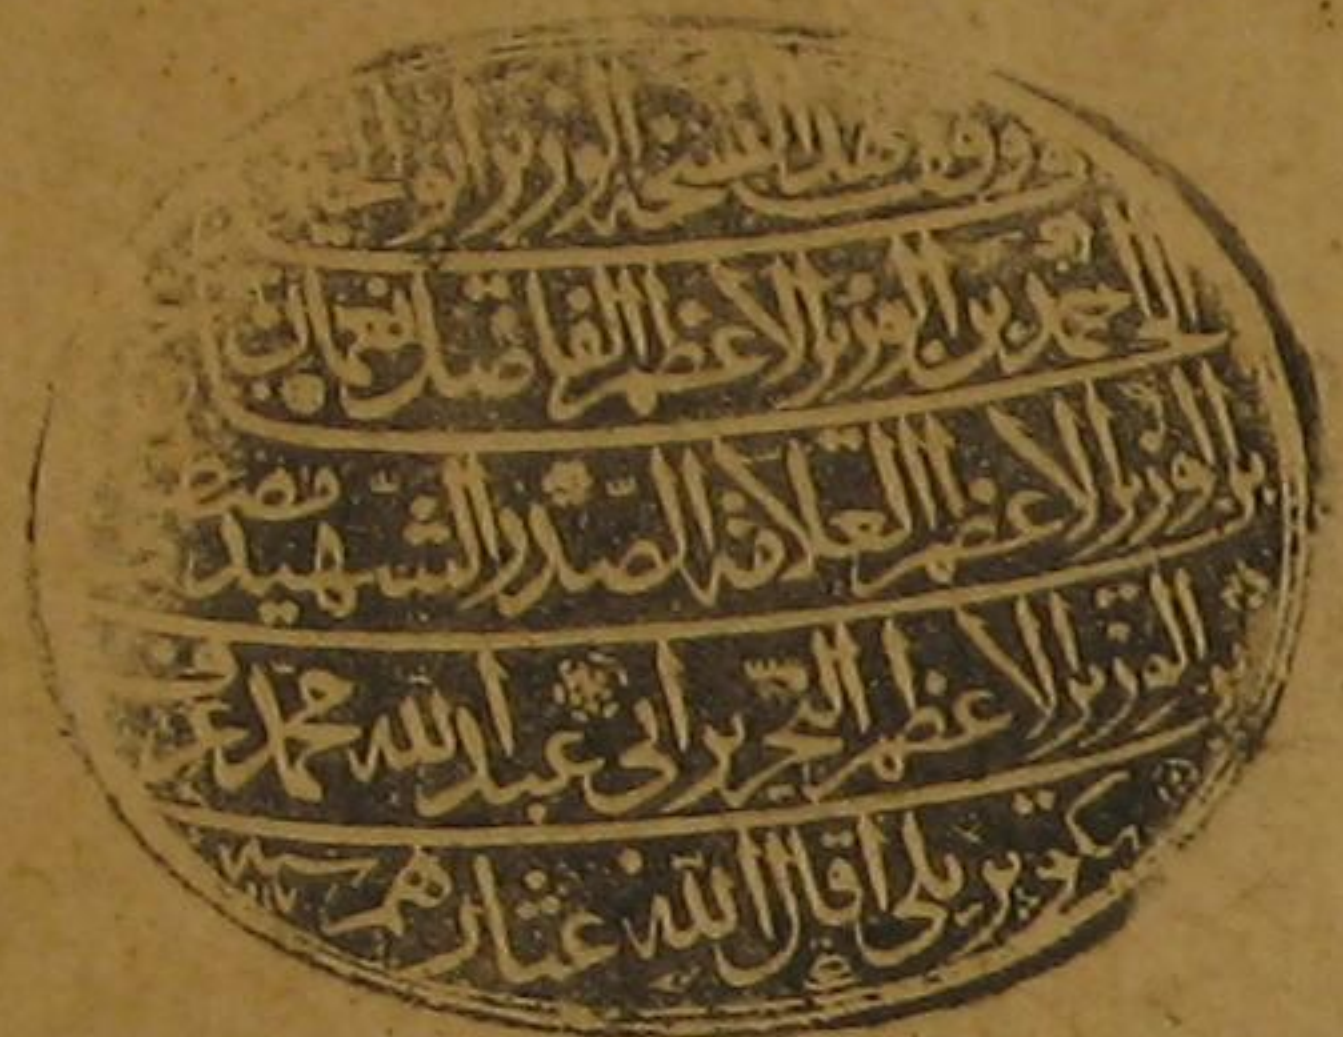 وقف هذه النسخة الوزير ابو
الحاج احمد بن الوزير الاعظم الفاضل نعمان
بن الوزير الاعظم العلامة الصدر الشهيد مصطفى
بن الوزير الاعظم النحرير ابى عبد الله محمد عرف
بكوپريلى اقال الله عثارهم